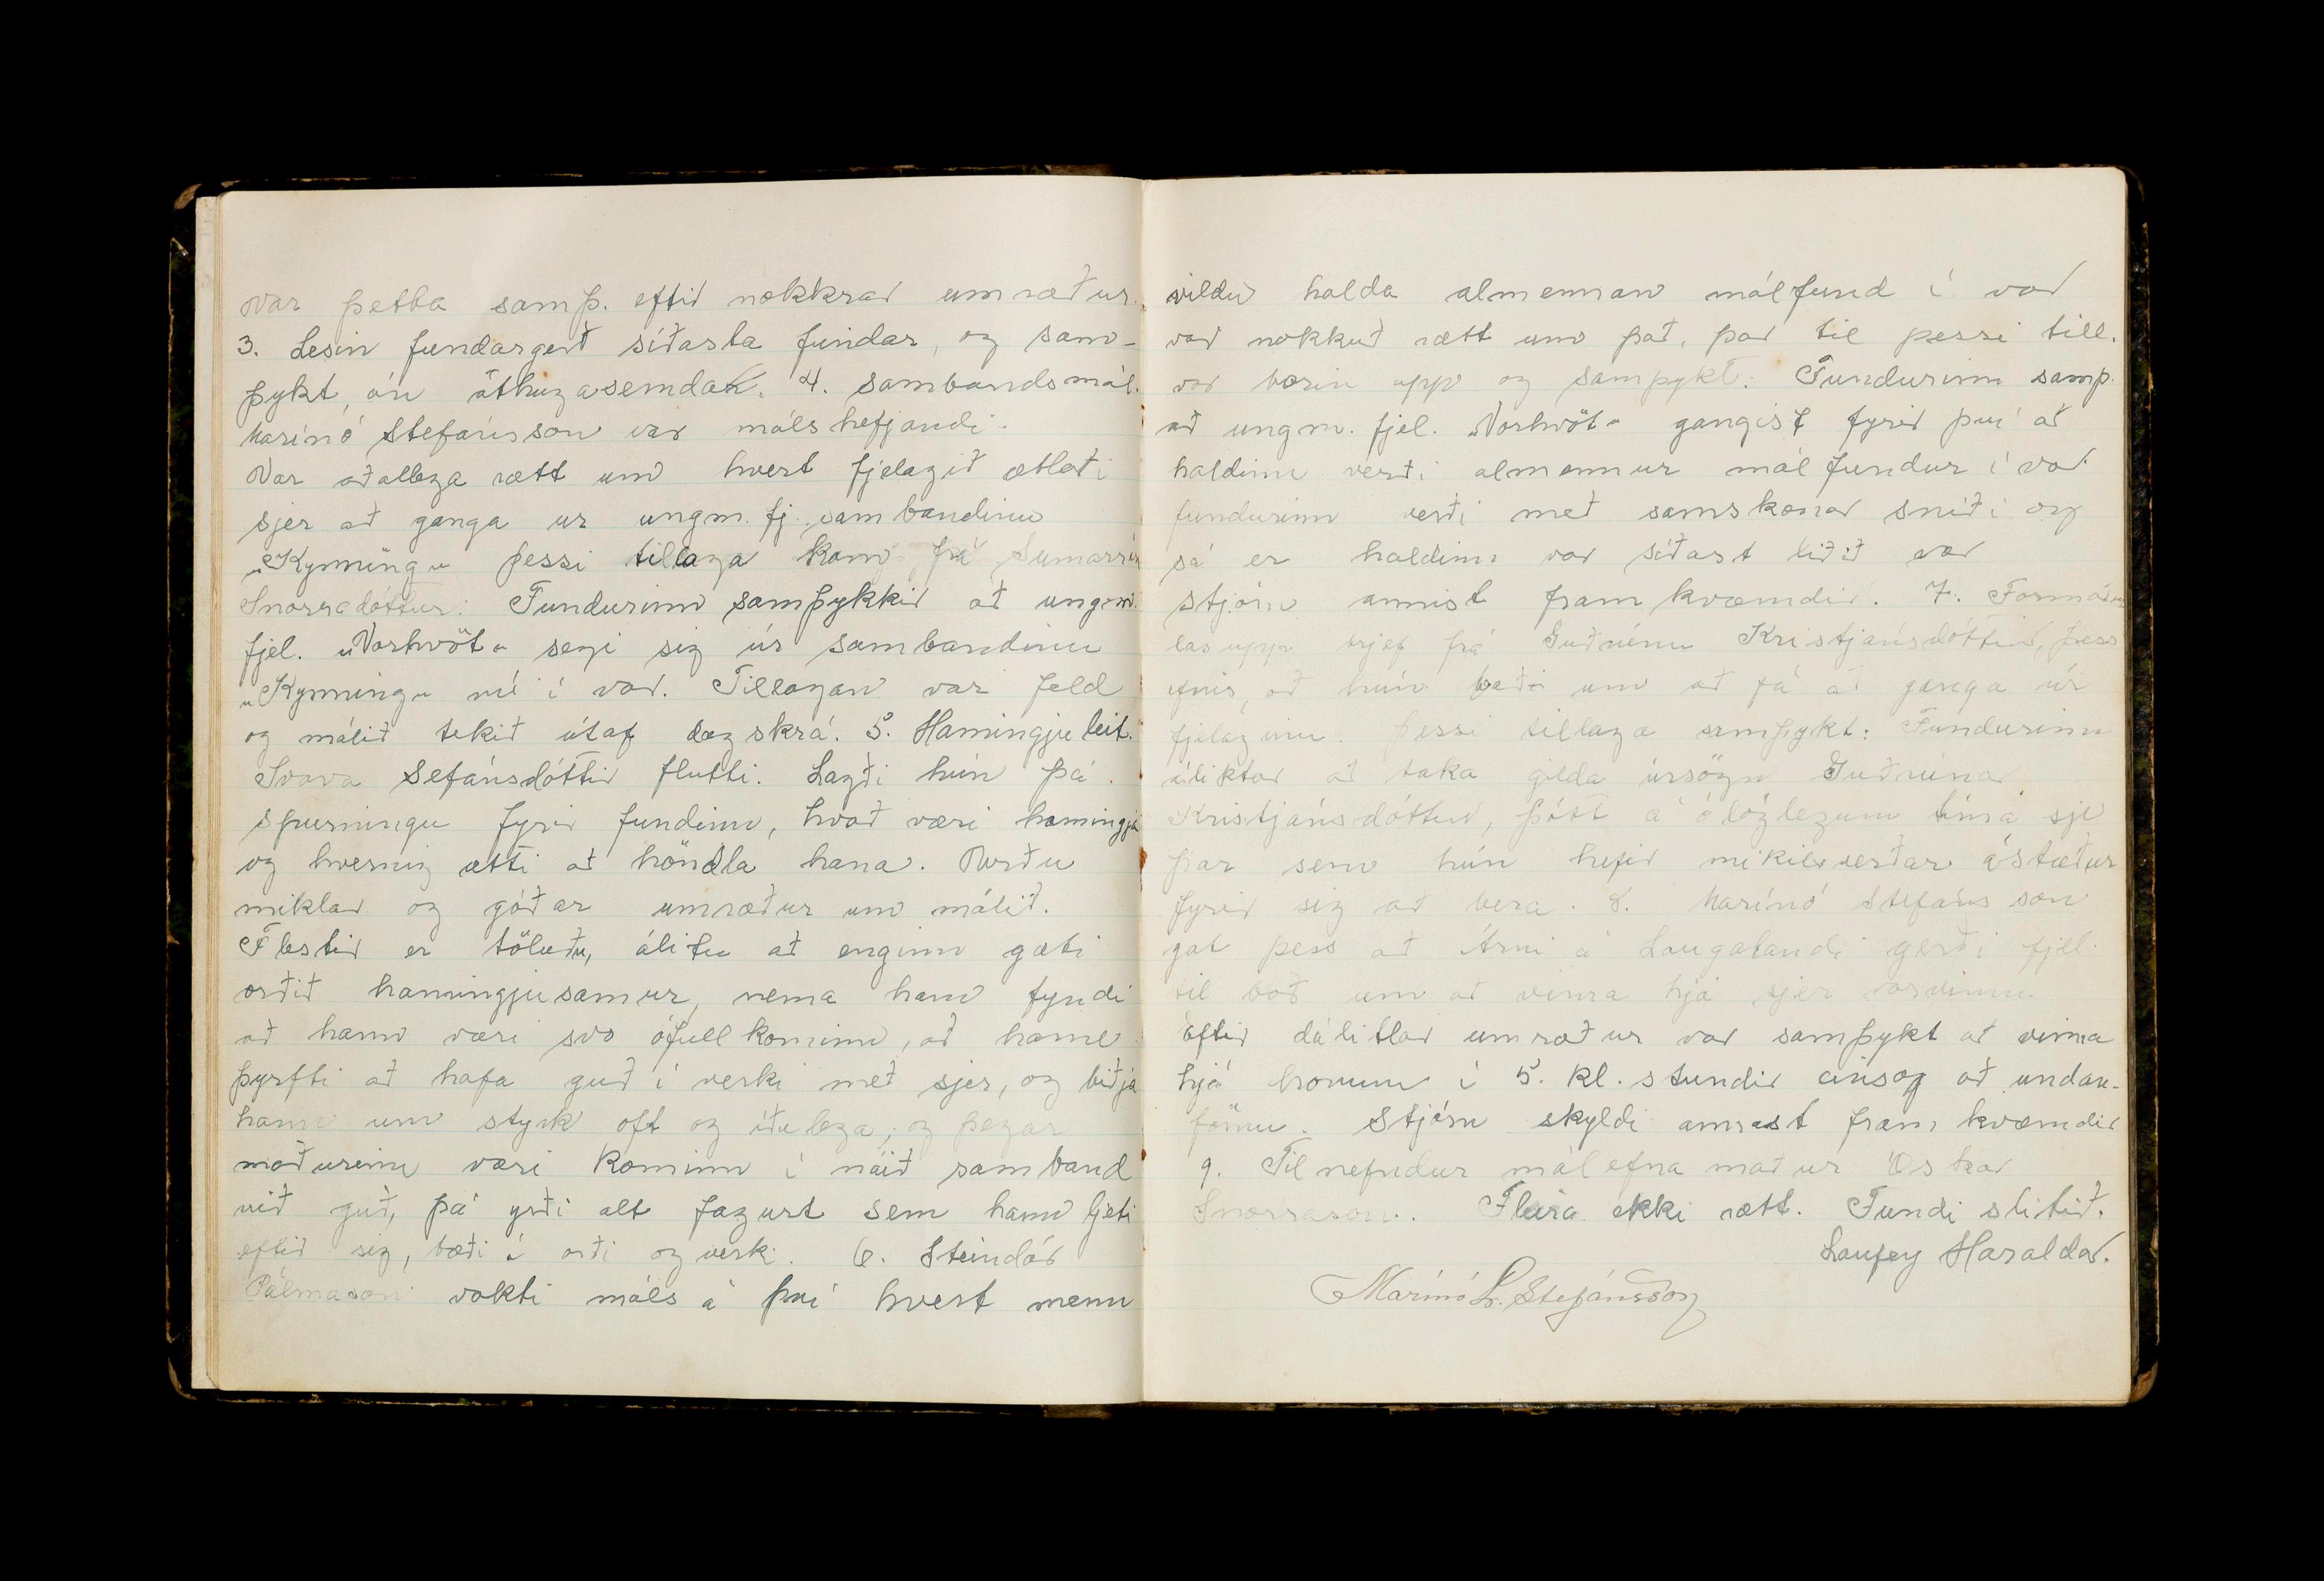 var þetta samþ. eftir nokkrar umræður.
3. Lesin fundargerð síðasta fundar, og sam-
þykt, án áthugasemdar. 4. Sambandsmál.
Marínó Stefánsson var málshefjandi.
Var aðallega rætt um hvert fjelagið ætlaði
sjer að ganga ur ungm. fj. sambandinu
„Kynning“ þessi tillaga kom frá Sumarrós
Snorradóttur: Fundurinn samþykkir að ungm.
fjel. „Vorhvöt“ segi sig úr sambandinu
„Kynning“ nú í vor. Tillagan var feld
og málið tekið útaf dagskrá. 5. Hamingjuleit.
Svava Sefánsdóttir flutti. Lagði hún þá
spurningu fyrir fundinn, hvað væri hamingja
og hvernig ætti að höndla hana. Urðu
miklar og góðar umræður um málið.
Flestir er töluðu, álitu að enginn gæti
orðið hamingjusamur, nema hann fyndi
að hann væri svo ófullkominn, að hann
þyrfti að hafa guð í verki með sjer, og biðja
hann um styrk oft og iðulega; og þegar
maðurinn væri kominn í náið samband
við guð, þá yrði alt fagurt sem hann ljeti
eftir sig, bæði í orði og verki. 6. Steindór
Pálmason vakti máls á því hvert menn
vildu halda almennan málfund í vor
var nokkuð rætt um það, þar til þessi till.
var borin upp og samþykt: Fundurinn samþ.
að ungm. fjel. „Vorhvöt“ gangist fyrir því að
haldinn verði almennur málfundur í vor
fundurinn verði með samskonar sniði og
sá er haldinn var síðast liðið vor
stjórn annist framkvæmdir. 7. Formaður
las upp brjef frá Guðrúnu Kristjánsdóttir, þess
efnis, að hún baði um að fá að ganga úr
fjelaginu. Þessi tillaga samþykt: Fundurinn
áliktar að taka gilda úrsögn Guðrúnar
Kristjánsdóttur, þótt á ólöglegum tíma sje
þar sem hún hefir mikilsverðar ástæður
fyrir sig að bera. 8. Marínó Stefánsson
gat þess að Árni á Laugalandi gerði fjel.
til boð um að vinna hjá sjer vorvinnu
Eftir dálitlar umræður var samþykt að vinna
hjá honum í 5. kl. stundir einsog að undan-
förnu. Stjórn skyldi annast framkvæmdir
9. Tilnefndur málefnamaður Óskar
Snorrason. Fleira ekki rætt. Fundi slitið.
Laufey Haraldar.
Marínó L. Stefánsson